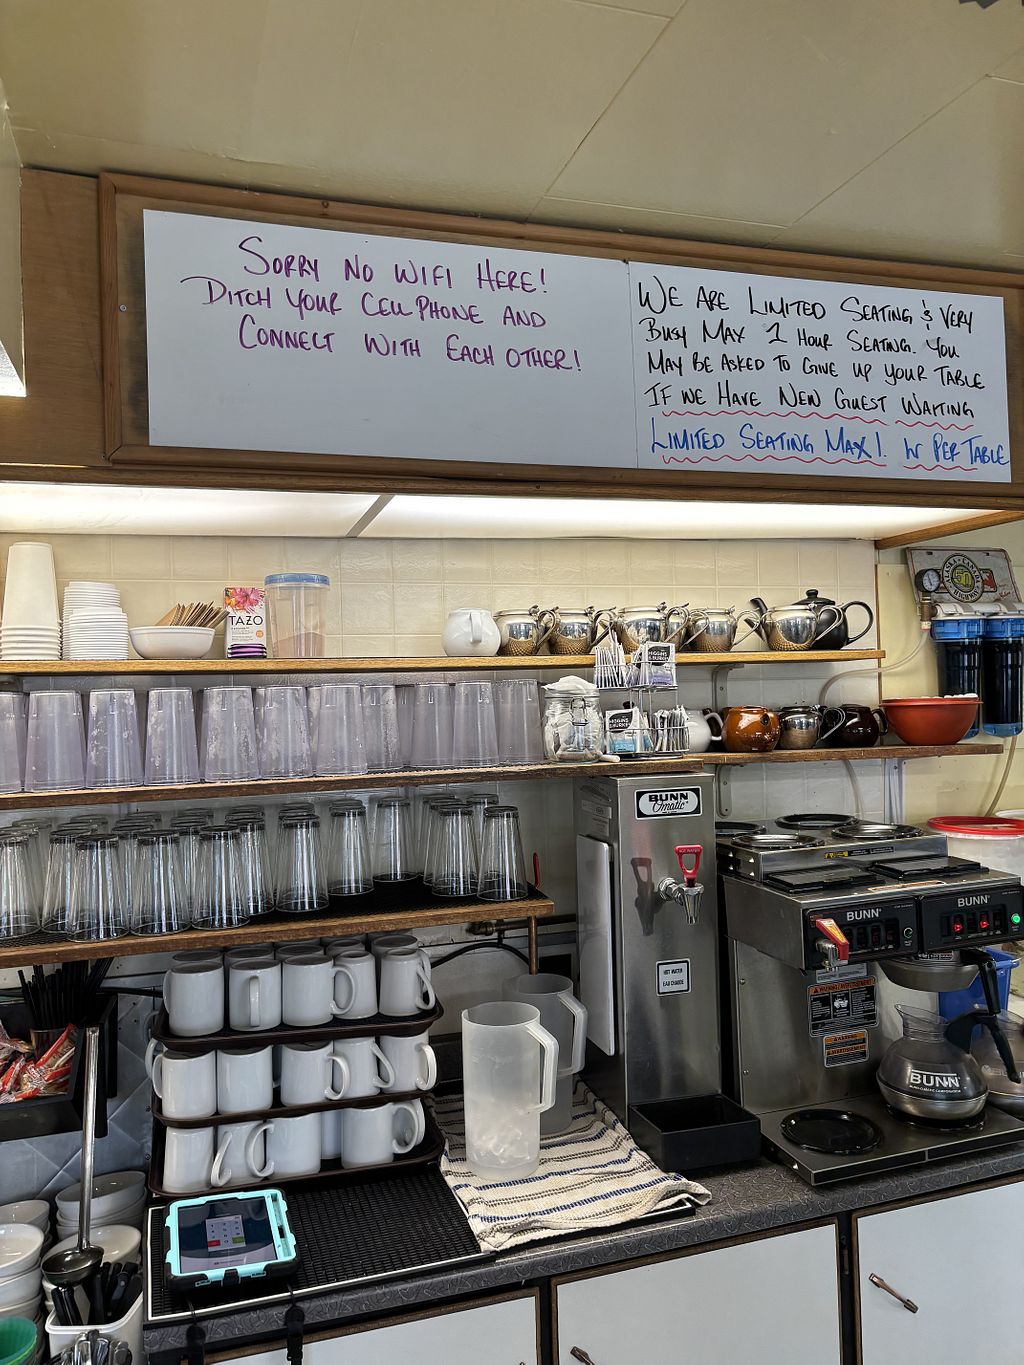 Sorry No WiFi Here!
Ditch your Cell Phone and
Connect with Each other!
We are Limited Seating & Very
Busy Max 1 Hour Seating. You
May be asked to Give up your Table
If we Have New Guest Waiting
Limited Seating Max 1. Hr Per Table
TAZO
BUNN
Omatic
HOT WATER
HOT WATER
EAU CHAUDE
BUNN
BUNN
WARNING
WARNING
BUNN